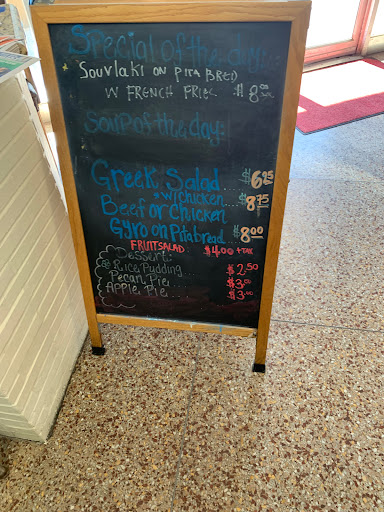 Special of the day:
Souvlaki on Pita Bred
w French Fries $8.00
Soup of the day:
Greek Salad $6.25
w/chicken $8.75
Beef or Chicken
Gyro on Pita bread $8.00
FRUIT SALAD $4.00 + TAX
Dessert:
Rice Pudding $2.50
Pecan Pie $3.00
Apple Pie $3.00